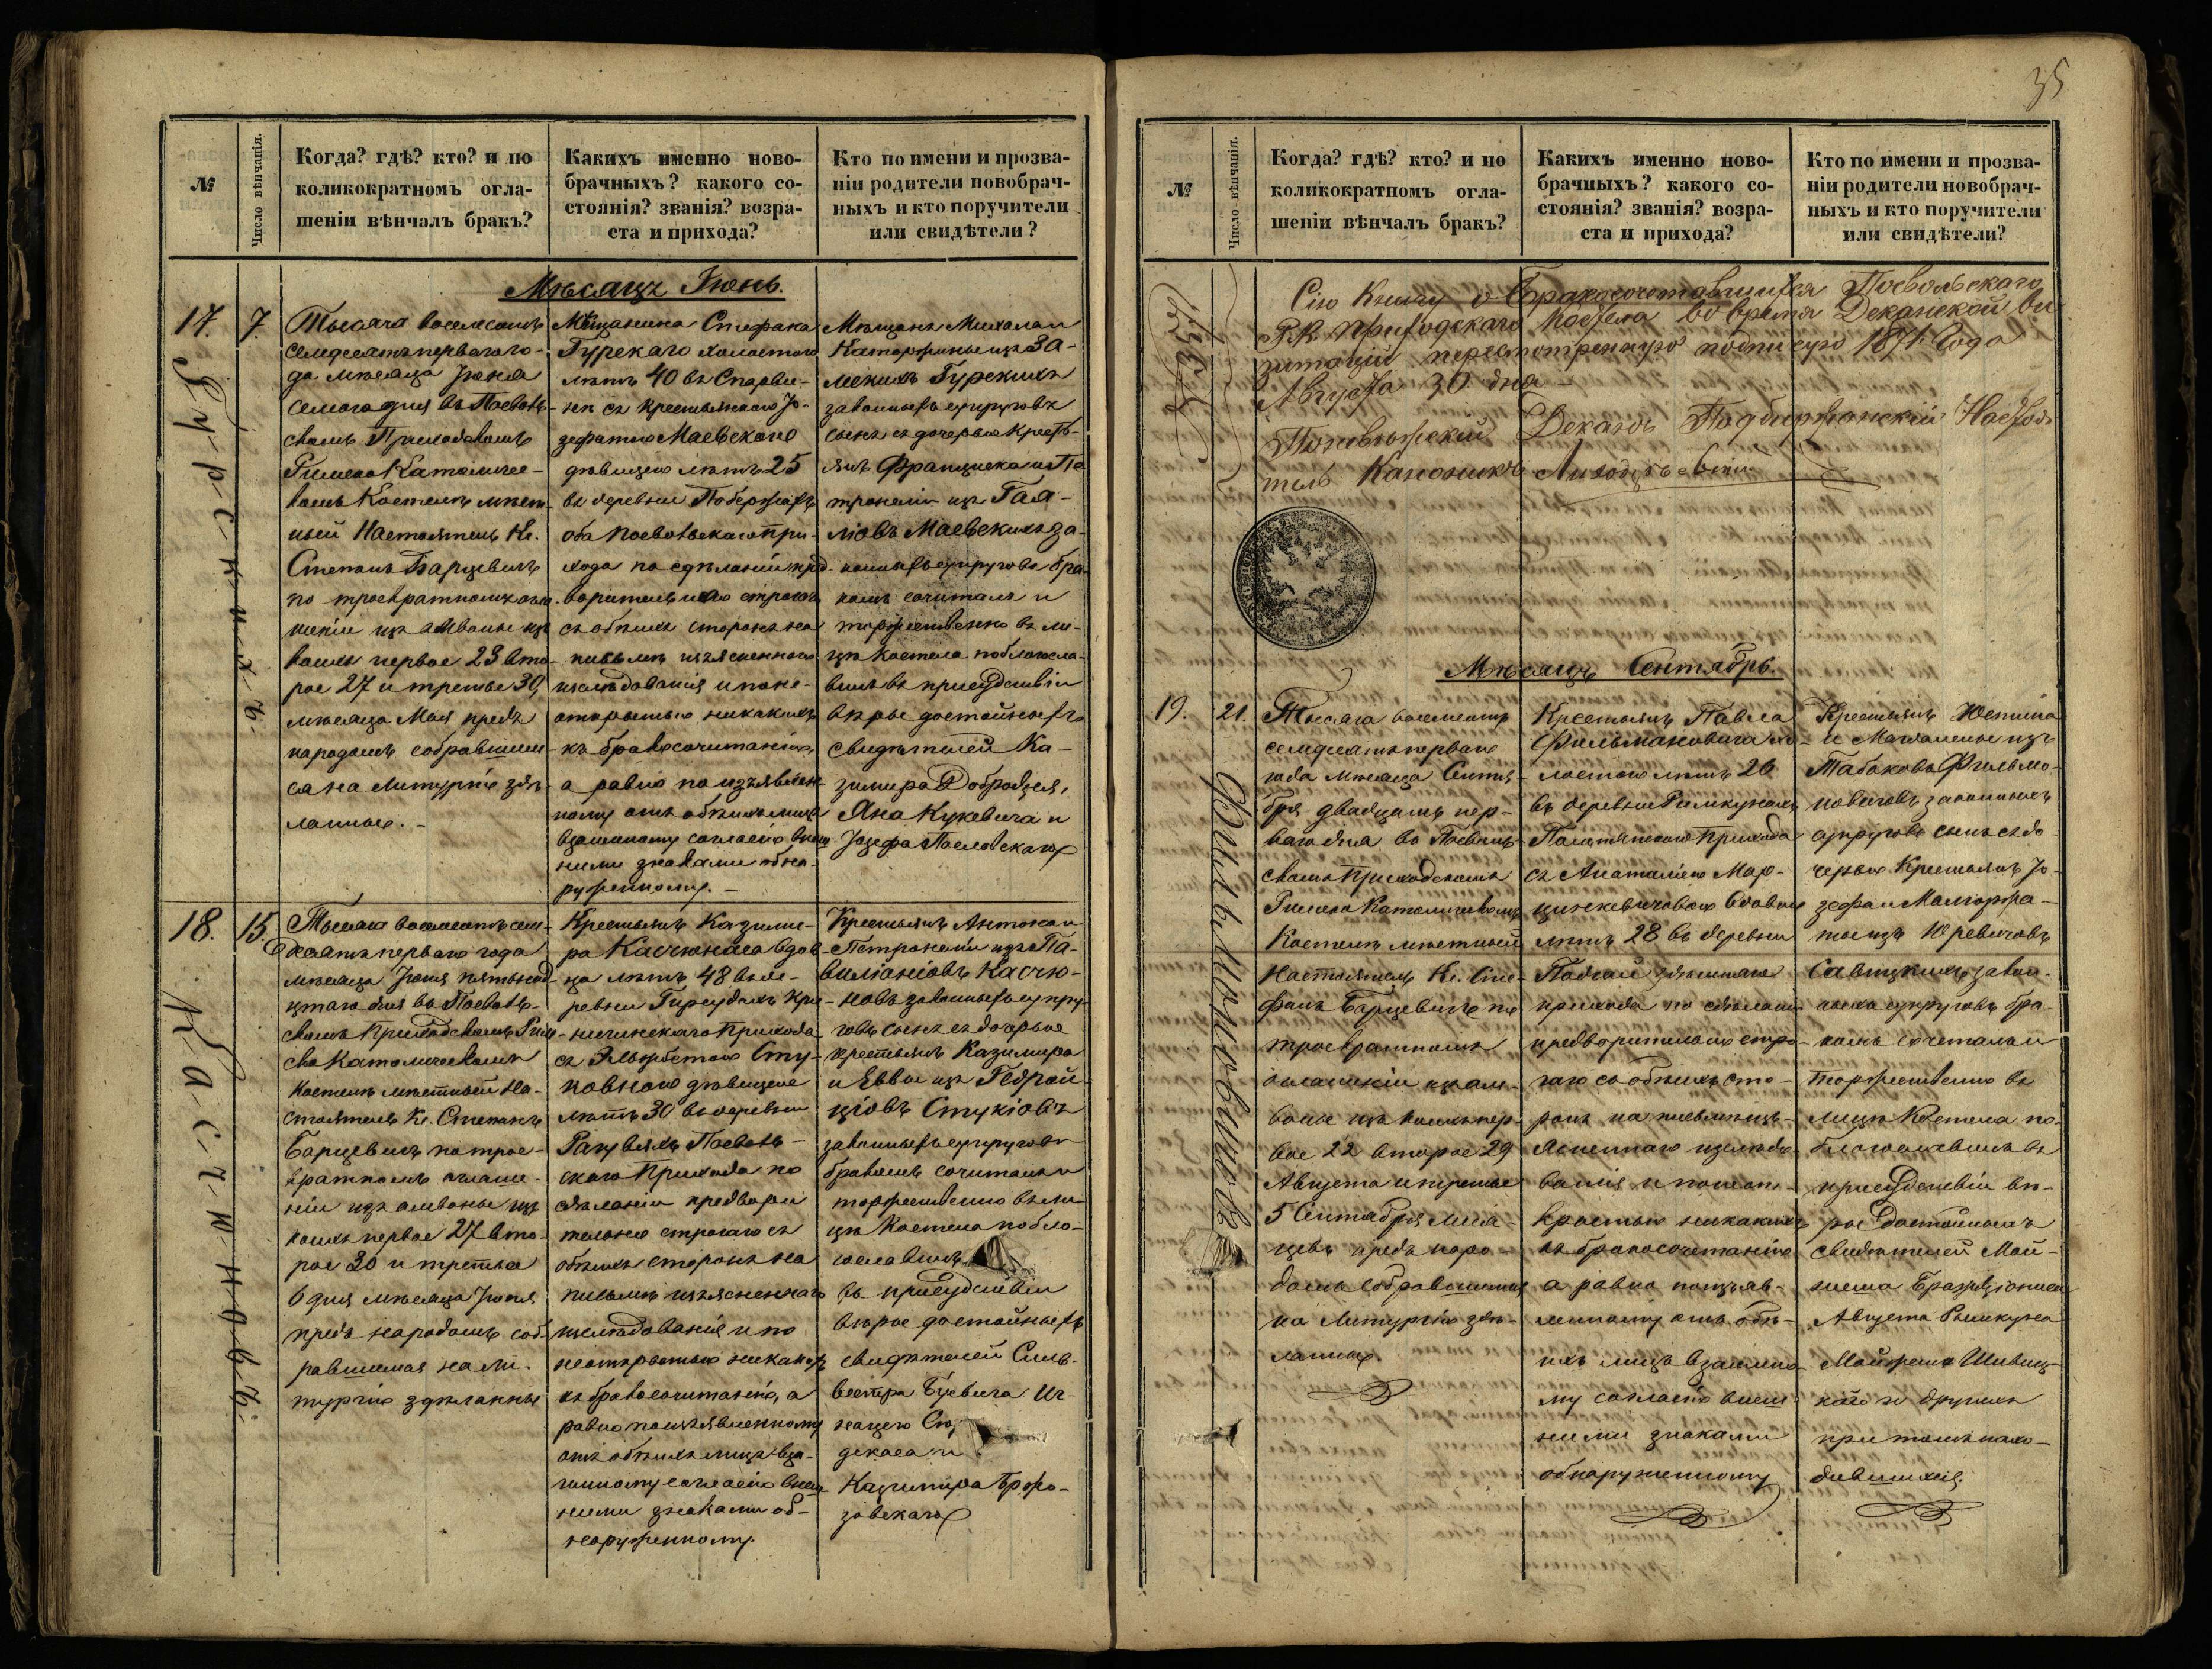 35
№
Число вѣнчанія.
Когда? гдѣ? кто? и по
коликократномъ огла-
шеніи вѣнчалъ бракъ?
Какихъ именно ново-
брачныхъ? какого со-
стоянія? званія? возра-
ста и прихода?
Кто по имени и прозва-
ніи родители новобрач-
ныхъ и кто поручители
или свидѣтели?
Мѣсяцъ Іюнь.
17.
7.
Гурскихъ
Тысяча восемсотъ
семдесятъ перваго го-
да мѣсяца Іюня
семаго дня въ Посволь-
скомъ Приходскомъ
Римско Католичес-
комъ Костелѣ мѣст-
ный Настоятель Кс.
Степанъ Барцевичъ
по троекратномъ огла-
шеніи изъ амвоны изъ
коихъ первое 23 вто-
рое 27 и третье 30,
мѣсяца Мая предъ
народомъ собравшим-
ся на Литургію здѣ-
ланные. -
Мѣщанина Стефана
Гурскаго холостого
лѣтъ 40 въ
съ крестьянкою Іо-
зефатою Маевскою
дѣвицею лѣтъ 25
въ деревни
оба Посвольскаго при-
хода по сдѣланіи пред-
варительнаго строгаго
съ обѣихъ сторонъ на
письмѣ изъясненнаго
изслѣдованія и поне-
открытью никакихъ
къ бракосочитанію,
а равно по изъявлен-
ному отъ обѣихъ лицъ
взаимному согласію внѣш-
ними знаками обна-
руженному. -
Мѣщанъ Михала и
Катаржины изъ За-
Гурскихъ
законныхъ супруговъ
сынъ съ дочерью Крест-
янъ Францишка и Пе-
тронели изъ Гая-
ліовъ Маевскихъ за-
конныхъ супруговъ бра-
комъ сочиталъ и
торжественно въ ли-
цѣ Костела поблагосла-
вилъ въ присудствіи
вѣры достойныхъ
свидѣтелей Ка-
зимира Добродзея,
Яна Кукевича и
Іозефа Пасловскаго
18.
15.
Касчюновъ
Тысяча восемсотъ сем-
десятъ перваго года
мѣсяца Іюня пятьнад-
цтаго дня въ Посволь-
скомъ Приходскомъ Рим-
ско Католическомъ
Костелѣ мѣстный На-
стоятель Кс. Степанъ
Барцевичъ по трое-
кратномъ оглаше-
ніи изъ амвоны изъ
коихъ первое 27 вто-
рое 30 и третье
6 дня мѣсяца Іюня
предъ народомъ соб-
равшимся на ли-
тургію здѣланные
Крестьянъ Казими-
ра Касчюнаса вдов-
ца лѣтъ 48 въ де-
ревни Кри-
ничинскаго Прихода
съ Эльжбетою Сту-
ковною дѣвицею
лѣтъ 30 въ деревни
Посволь-
скаго Прихода по
сдѣланіи предвари-
тельно строгаго съ
обѣихъ сторонъ на
письмѣ изъясненнаго
изслѣдованія и по
неоткрытью никакихъ
къ бракосочитанію, а
равно по изъявленному
отъ обѣихъ лицъ вза-
имному согласію внѣш-
ними знаками об-
наруженному.
Крестьянъ Антона и
Петронели изъ Па-
виліоніовъ Касчю-
новъ законныхъ супру-
говъ сынъ съ дочерью
крестьянъ Казимира
и Еввы изъ Гедрой-
ціовъ Стукіовъ
законныхъ супруговъ
бракомъ сочиталъ и
торжественно въ ли-
цѣ Костела побла-
гославилъ
въ присудствіи
вѣрое достойныхъ
свидѣтелей Силь-
вестра Буевича Иг-
нацего
и
Казимира Бржо-
зовскаго
№
Число вѣнчанія.
Когда? гдѣ? кто? и по
коликократномъ огла-
шеніи вѣнчалъ бракъ?
Какихъ именно ново-
брачныхъ? какого со-
стоянія? званія? возра-
ста и прихода?
Кто по имени и прозва-
ніи родители новобрач-
ныхъ и кто поручители
или свидѣтели?
Сію Книгу о Бракосочетавшихся Посвольскаго
Р.К. Приходскаго Костела во время Деканской ви
зитаціи пересмотренную подписую 1871 Года
Августа 30 дня -
Поневѣжскій Деканъ Подбиржанскій Настоя
тель Каноникъ
Мѣсяцъ Сентябрь.
19.
21.
Фильмоновичовъ
Тысяча восемсотъ
семдесятъ перваго
года мѣсяца Сентя-
бря двадцать пер-
ваго дня въ Посволь-
скомъ Приходскомъ
Римско Католическомъ
Костелѣ мѣстный
Настоятель Кс. Сте-
фанъ Барцевичъ по
троекратномъ
оглашеніи изъ ам-
воны изъ коихъ пер-
вое 22 второе 29
Августа и третье
5 Сентября меся-
цевъ предъ наро-
домъ собравшимся
на Литургію здѣ-
ланные.
Крестьянъ Павла
Фильмановича хо-
лостого лѣтъ 26
въ деревни Римкунахъ
Прихода
съ Анастазіею Мар-
цинкевичовою вдовою
лѣтъ 28 въ деревни
здѣшняго
прихода по сдѣлани
предворительно стро-
гаго со обѣихъ сто-
ронъ на письмѣ изъ-
ясненнаго изслѣдо-
ванія и понеот-
крытью никакихъ
къ бракосочетанію
а равно поизъяв-
ленному отъ обѣ-
ихъ лицъ взаимно-
му согласію внеш-
ними знаками
обнаруженному
Крестьянъ Юстина
и Магдалены изъ
Табоковъ Фильмо-
новичовъ законныхъ
супруговъ сынъ съ до-
черью Крестьянъ Іо-
зефа и Малгоржа-
ты изъ Юревичовъ
Савицкихъ закон-
ныхъ супруговъ бра-
комъ сочеталъ и
торжественно въ
лицѣ Костела по-
благославилъ въ
присудствіи вѣ-
рое достойныхъ
свидѣтелей Мой-
Августа Римкуна
и другихъ
при томъ нахо-
дившихся.